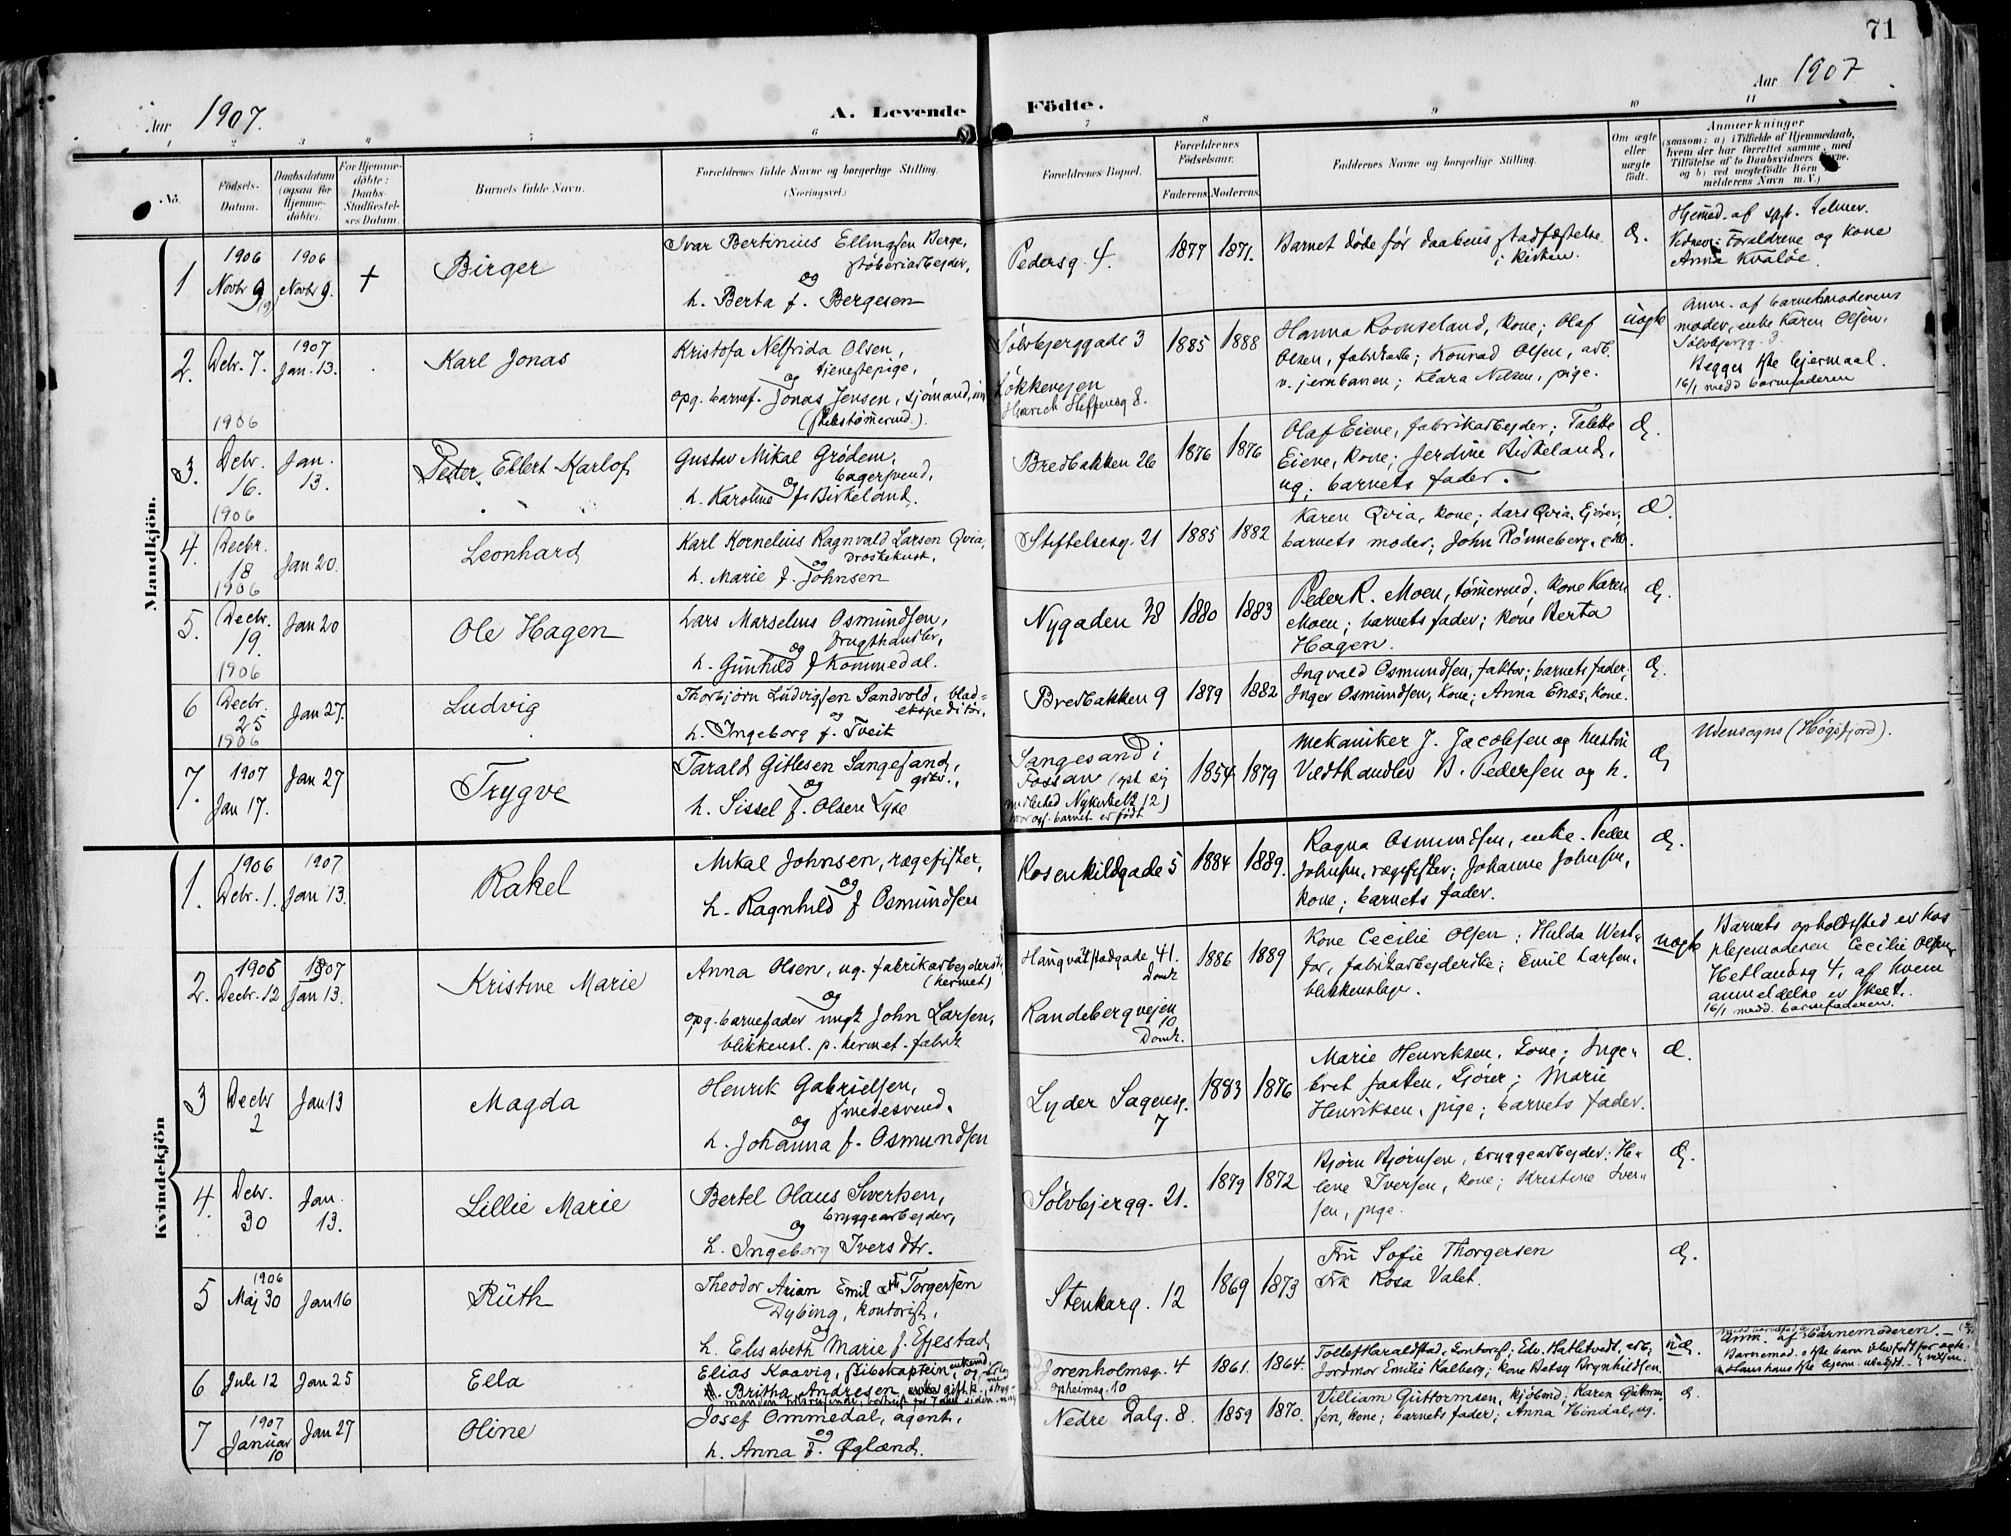 71
Aar 1907.
A. Levende Födte.
Aar 1907
1 2 3 4 5 6 7 8 9 10 11
No.
Födsels-Datum.
Daabsdatum (ogsaa for Hjemmedöbte).
For Hjemmedöbte: Daabs-Stadfæstelses Datum.
Barnets fulde Navn.
Forældrenes fulde Navne og borgerlige Stilling. (Næringsvei.)
Forældrenes Bopæl.
Forældrenes Födselsaar.
Faderens Moderens
Faddernes Navne og borgerlige Stilling.
Om ægte eller uægte födt.
Anmærkninger
(saasom: a) i Tilfælde af Hjemmedaab, hvem der har forrettet samme, med Tilföielse af to Daabsvidners Navne, og b) ved uægtefödte Börn Anmelderens Navn m. V.)
Mandkjön.
1
1906 Novbr 9
1906 Novbr 9.
+
Birger
Ivar Bertinius Ellingsen Berge,
støberiarbejder,
og
h. Berta f. Bergesen
Pedersg. 4.
1877 1871.
Barnet døde før daabens stadfæstelse
i kirken.
Æ.
Forældrene og kone
Anna Kvaløe.
2.
Decbr. 7.
1907 Jan. 13.
Karl Jonas
Kristofa Nelfrida Olsen,
tjenestepige,
og
opg. barnef. Jonas Jensen, sjømand,
(skibstømermd.).
Sølvbjerggade 3
Løkkevejen
1885 1888
Hanna Romseland, kone; Olaf
Olsen, fabrikarb; Konrad Olsen, arb.
v. jernbanen; Klara Nilsen, pige.
uægte
Anm. af barnets moderens
moder, enke Karen Olsen,
Sølvbjergg. 3.
Begges 1ste lejermaal.
16/1 medd barnefaderen
3.
1906 Decbr. 16.
Jan. 13.
Peter Ellert Karlof
Gustav Mikal Grødem,
bagersvend,
og
h. Karoline f. Birkeland.
Bredbakken 26
1876 1876
Olaf Eiene, fabrikarbejder; Talette
Eiene, kone; Jerdine Birkeland,
ug; barnets fader.
Æ.
4.
1906 Decbr. 18
Jan 20.
Leonhard
Karl Kornelius Ragnvald Larsen Qvia,
droskekusk,
og
h. Marie f. Johnsen
Stiftelsesg. 21
1885 1882
Karen Qvia, kone; Lars Qvia, Gjører;
barnets moder; John Rønneberg,
Æ.
5.
1906 Decbr. 19.
Jan 20
Ole Hagen
Lars Marselius Osmundsen,
frugthandler,
og
h. Gunhild f. Kommedal.
Nygaden 38
1880 1883
Peder R. Moen, tømermd; kone Karen
Moen; barnets fader; kone Berta
Hagen.
Æ.
6
1906 Decbr. 25
Jan 27.
Ludvig
Thorbjørn Ludvigsen Sandvold, blad-
ekspeditør,
og
h. Ingeborg f. Tveit
Bredbakken 9
1879 1882
Ingvald Osmundsen, faktor; barnets fader;
Inger Osmundsen, kone; Anna Enæs, kone.
Æ.
7.
1906
1907 Jan 17.
Jan 27
Trygve
Tarald Gitlesen Sangesand,
grbr.,
og
h. Sissel f. Olsen Lyse
Sangesand i
Fossan
hvor ogs. barnet er født
1854 1879
Mekaniker J. Jacobsen og hustru
Vedthandler B. Pedersen og h.
Æ
Udensogns (Høgsfjord).
Kvindekjön
1.
1906 Decbr. 1.
1907 Jan 13.
Rakel
Mikal Johnsen, rægefisker,
og
h. Ragnhild f Osmundsen
Rosenkildgade 5
1884 1889.
Ragna Osmundsen, enke. Peder
Johnsen, rægefisker; Johanne Johnsen,
kone; barnets fader.
Æ.
2.
1906 Decbr. 12
1907 Jan 13.
Kristine Marie
Anna Olsen, ug. fabrikarbejderske
(hermet)
og
opg. barnefader ungk John Larsen,
blikkensl. p. hermet. fabrik
Haugvaltstadgade 41.
Domk
Randebergvejen
10
Domk.
1886 1889
Kone Cecilie Olsen; Hulda West-
for, fabrikarbejderske; Emil Larsen,
blikkenslager.
uægte
Barnets opholdssted er hos
plejemoderen Cecilie Olsen,
Hetlandsg 4, af hvem
anmeldelse er skeet.
16/1 medd. barnefaderen.
3
Decbr 2
Jan 13
Magda
Henrik Gabrielsen,
smedesvend.
og
h. Johanna f. Osmundsen
Lyder Sagensg.
7
1883 1876
Marie Henriksen, kone; Inge-
bret Faaten, Gjører; Marie
Henriksen, pige; barnets fader.
Æ.
4.
Decbr. 30
Jan. 13.
Lillie Marie
Bertel Olaus Sivertsen,
bryggearbejder,
og
h. Ingeborg Iversdtr.
Sølvbjergg. 21.
1879 1872
Bjørn Bjørnsen, bryggearbejder; He-
lene Iversen, kone; Kristine Iver-
sen, pige.
Æ.
5
1906 Maj 30
Jan 16
Rüth
Theodor Arian Emil Torgersen
Dybing, kontorist,
og
h. Elisabeth Marie f. Egestad
Stenkarg. 12
1869 1873
Fru Sofie Thorgersen
Frk Rosa Valet.
Æ.
6
Juli 12
Jan 25
Ella
Elias Kaavig, skibskaptein, enkemd,
Britha Andresen
Jorenholmsg. 4
Opheimsg. 10
1861. 1864.
Tollef Haraldstad, kontorist; Edv. Hatletvedt, arb;
Jordmor Emilie Kalberg; kone Betsy Brynhildsen
uæ.
Anm. af barnemoderen.
7
1907 Januar 10
Jan 27
Oline
Josef Ommedal, agent,
og
h. Anna f. Øglænd.
Nedre Dalg. 8.
1859 1870.
Villiam Guttormsen, kjøbmd; Karen Guttorm-
sen, kone; barnets fader; Anna Hindal, ug.
Æ.